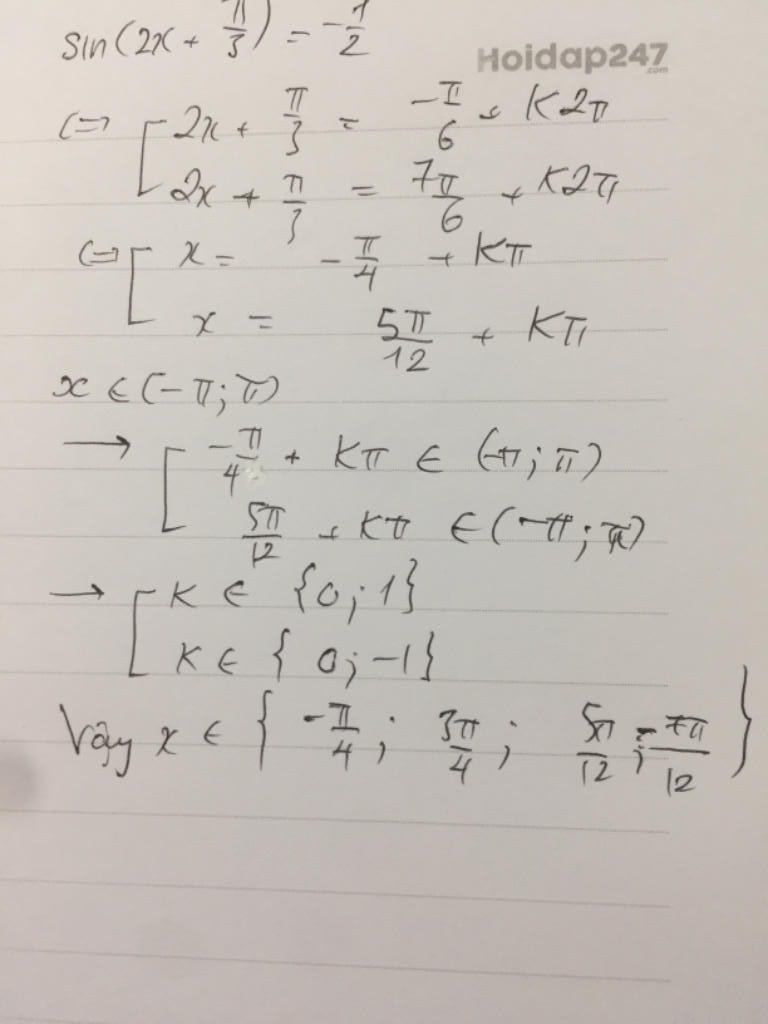 sin(2x + π/3) = -1/2
Hoidap247
.com
<=> [ 2x + π/3 = -π/6 + K2π
2x + π/3 = 7π/6 + K2π
<=> [ x = -π/4 + Kπ
x = 5π/12 + Kπ
x ∈ (-π; π)
→ [ -π/4 + Kπ ∈ (-π; π)
5π/12 + Kπ ∈ (-π; π)
→ [ K ∈ {0; 1}
K ∈ {0; -1}
Vậy x ∈ { -π/4; 3π/4; 5π/12; -7π/12 }